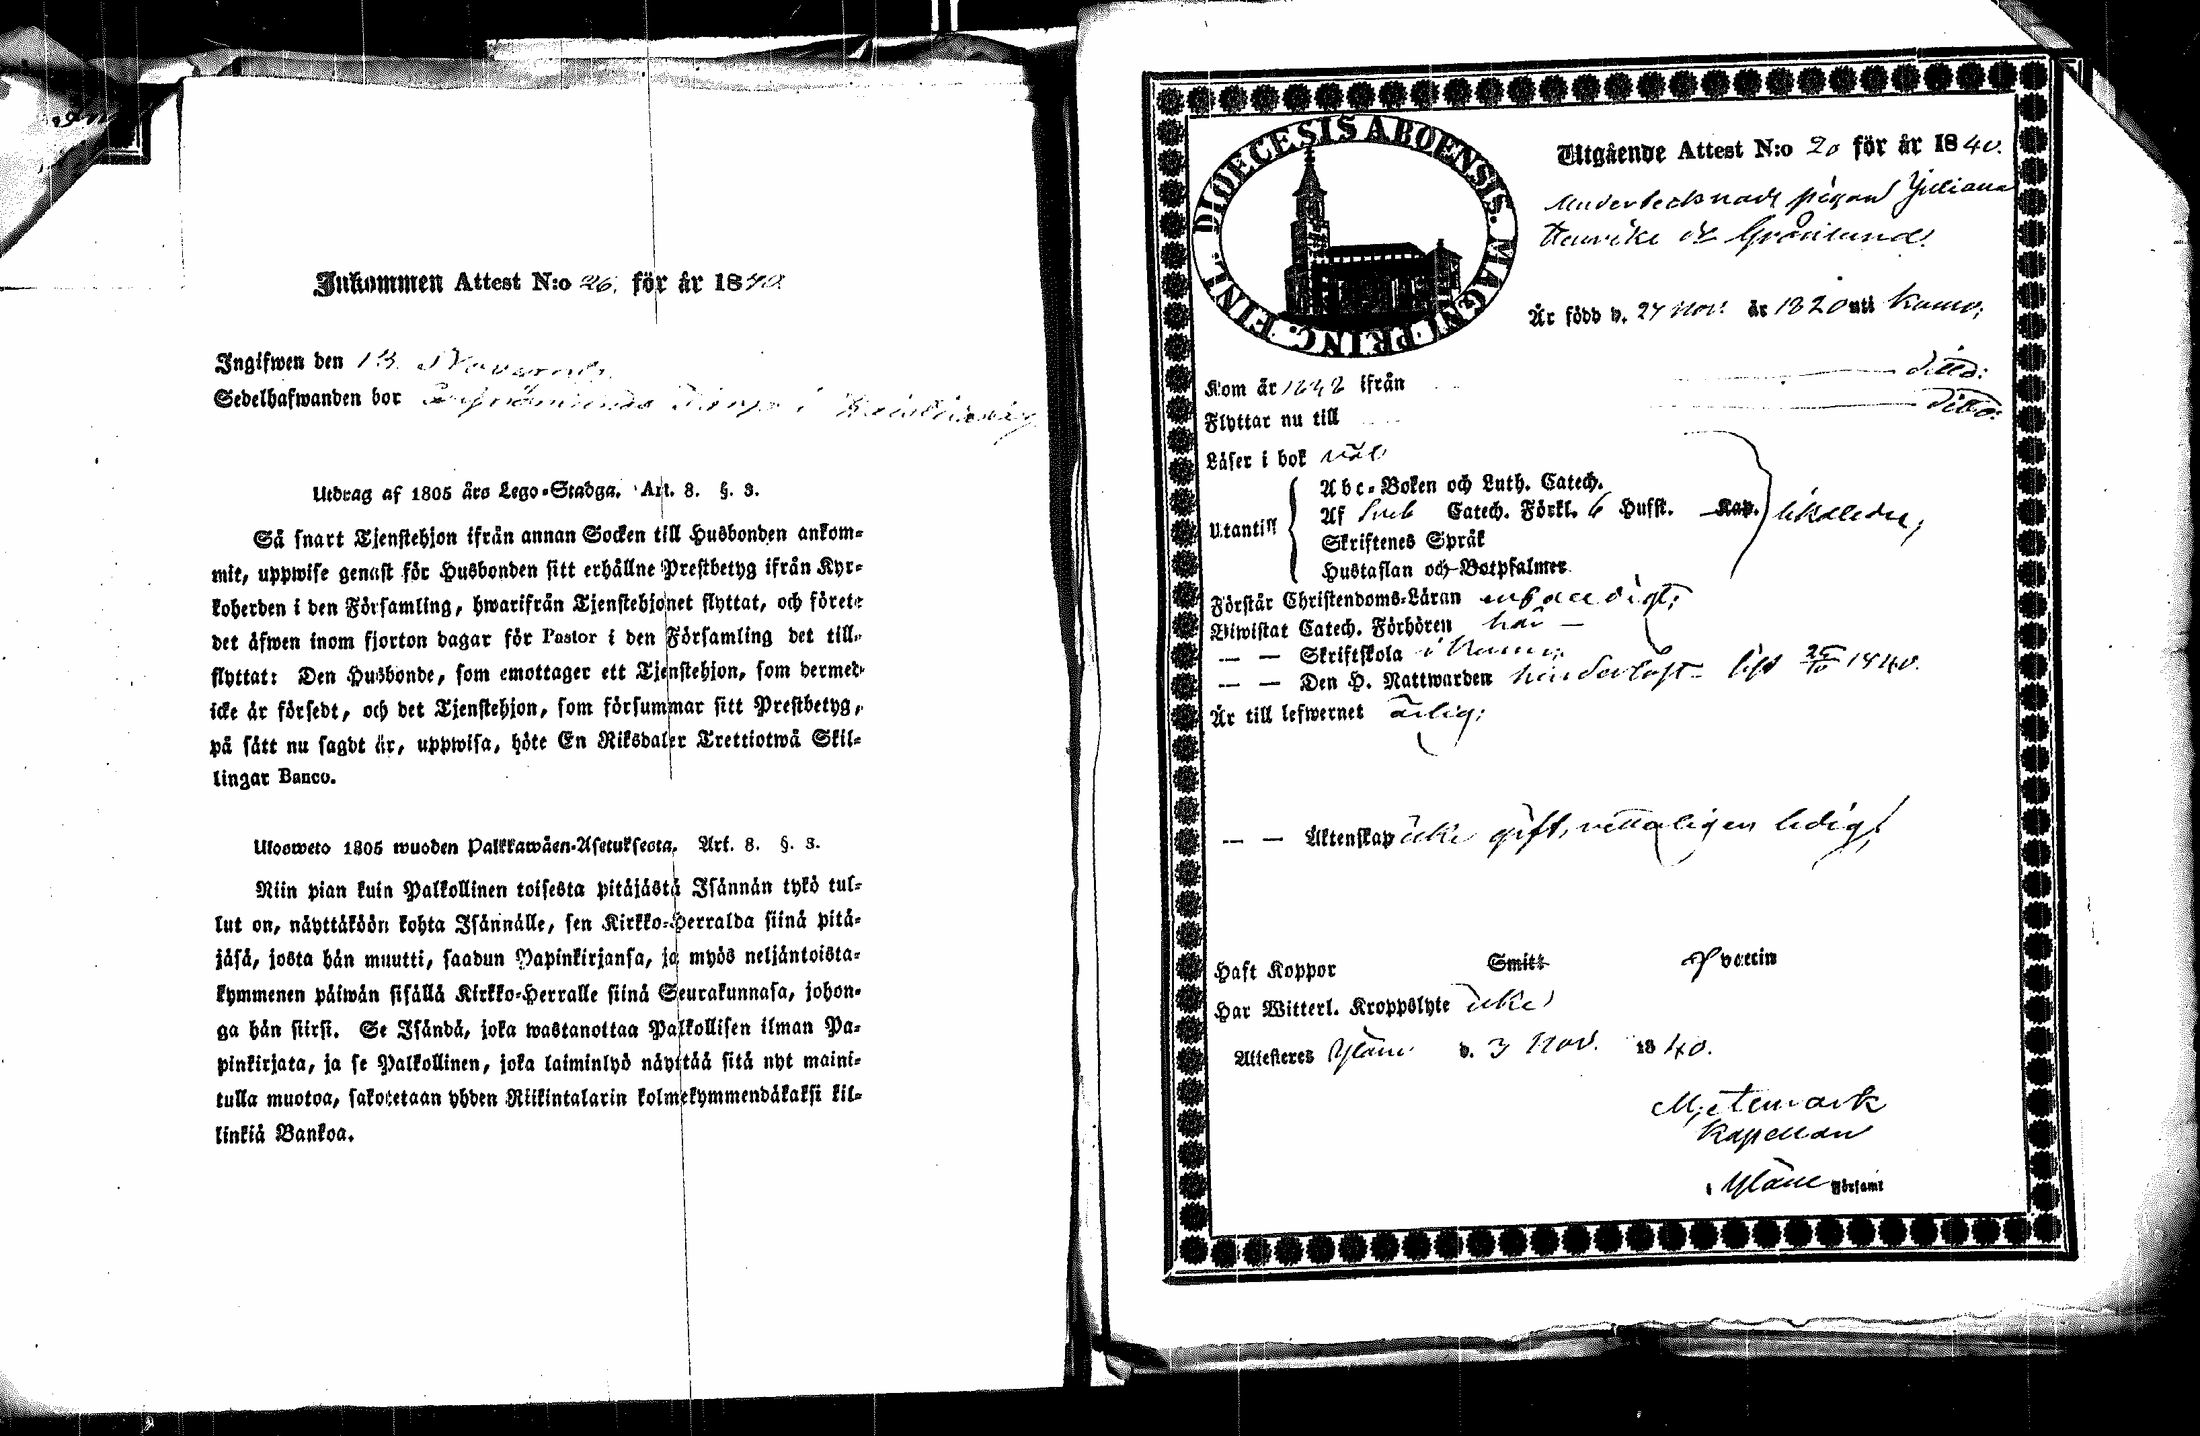 Inkommen Attest N:o 26. för år 1840.
Ingifwen den 13. Novemb.
Sedelhafwanden bor
Utdrag af 1805 års Lego-Stadga. Art. 8. §. 3.
Så snart Tjenstehjon ifrån annan Socken till Husbonden ankom-
mit, uppwise genast för Husbonden sitt erhållne Prestbetyg ifrån Kyr-
koherden i den Församling, hwarifrån Tjenstehjonet flyttat, och förete
det äfwen inom fjorton dagar för Pastor i den Församling det till-
flyttat: Den Husbonde, som emottager ett Tjenstehjon, som dermed
icke är försedt, och det Tjenstehjon, som försummar sitt Prestbetyg,
på sätt nu sagdt är, uppwisa, böte En Riksdaler Trettiotwå Skil-
lingar Banco.
Ulosweto 1805 wuoden Palkkawäen-Asetuksesta. Art. 8. §. 3.
Niin pian kuin Palkollinen toisesta pitäjästä Isännän tykö tul-
lut on, näyttäköön kohta Isännälle, sen Kirkko-Herralda siinä pitä-
jäsä, josta hän muutti, saadun Papinkirjansa, ja myös neljäntoista-
kymmenen päiwän sisällä Kirkko-Herralle siinä Seurakunnasa, johon-
ga hän siirsi. Se Isändä, joka wastanottaa Palkollisen ilman Pa-
pinkirjata, ja se Palkollinen, joka laiminlyö näyttää sitä nyt maini-
tulla muotoa, sakotetaan yhden Riikintalarin kolmekymmendäkaksi kil-
linkiä Bankoa.
DIOECESIS ABOENSIS. MAGNI PRINC. FINL.
Utgående Attest N:o 20 för år 1840.
pigan Juliana
Grönlund
Är född d. 27 Nov. år 1820 uti Kumo;
Kom år ifrån ditto:
Flyttar nu till ditto:
Läser i bok väl
Utantill
Abc-Boken och Luth. Catech.
Af Sveb Catech. Förkl. 6 Hufst. Kap. likaledes,
Skriftenes Språk
Hustaflan och Botpsalmer
Förstår Christendoms-Läran
Biwistat Catech. Förhören här
— — Skriftskola i Kumo;
— — Den H. Nattwarden hinderlöst 25/10 1840.
Är till lefwernet ärlig;
— — Äktenskap icke gift, vetterligen ledig;
Haft Koppor Smitt Vaccin
Har Witterl. Kroppslyte icke
Attesteres Yläne d. 3 Nov. 1840.
Kapellan
i Yläne Församl